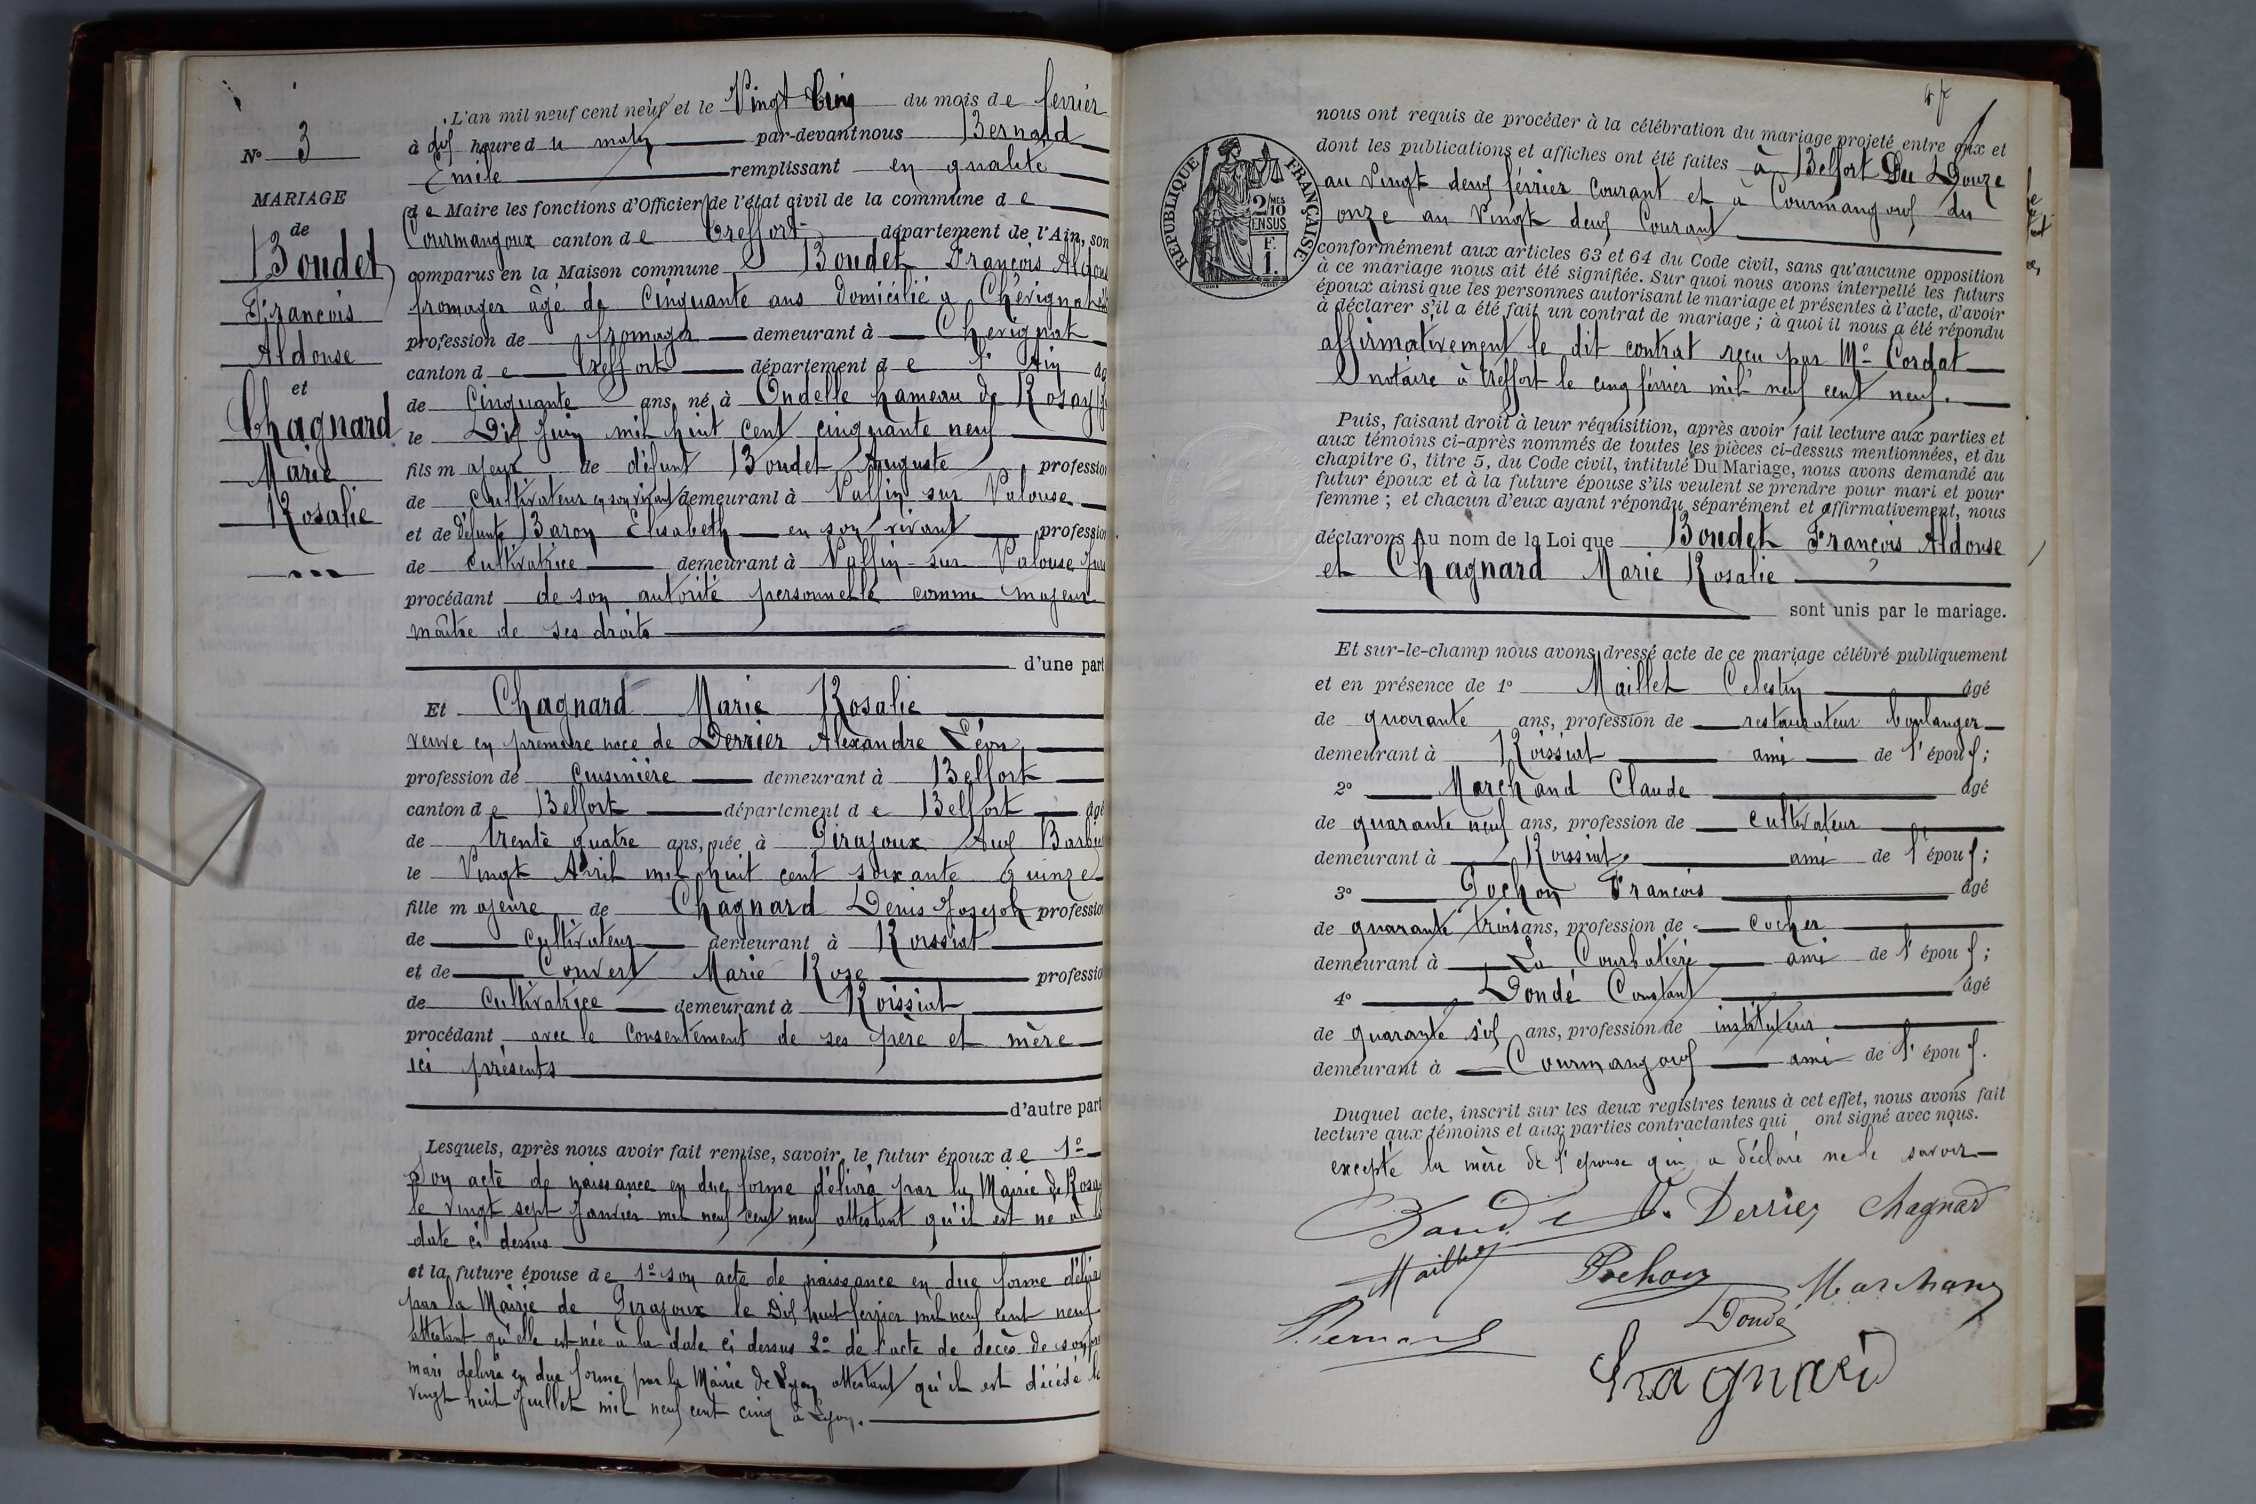 N° 3
MARIAGE
de
Boudet
François
Aldonse
et
Chagnard
Marie
Rosalie
L'an mil neuf cent neuf et le Vingt Cinq du mois de fevrier
à dix heure du matin par-devant nous Bernard
Emile remplissant en qualité
de Maire les fonctions d'Officier de l'état civil de la commune de
Courmangoux canton de Treffort département de l'Ain, son
comparus en la Maison commune Boudet François Aldonse
fromager âgé de Cinquante ans domicilié à Chevignat
profession de fromager demeurant à Chevignat
canton de Treffort département de l'Ain âgé
de Cinquante ans, né à Ondelle hameau de Rosay
le Dix Juin mil huit cent cinquante neuf
fils majeur de défunt Boudet Auguste profession
de Cultivateur en son vivant demeurant à Valfin sur Valouse
et de défunte Baron Elisabeth en son vivant profession
de cultivatrice demeurant à Valfin-sur Valouse Jura
procédant de son autorité personnelle comme majeur
maître de ses droits
d'une part
Et Chagnard Marie Rosalie
veuve en première noce de Derrier Alexandre Léon,
profession de Cuisinière demeurant à Belfort
canton de Belfort département de Belfort âgé
de trente quatre ans, née à Pirajoux
le Vingt Avril mil huit cent soixante Quinze
fille majeure de Chagnard Denis Joseph profession
de Cultivateur demeurant à Roissiat
et de Convert Marie Rose profession
de Cultivatrice demeurant à Roissiat
procédant avec le consentement de ses père et mère
ici présents
d'autre part
Lesquels, après nous avoir fait remise, savoir, le futur époux de 1°
Son acte de naissance en due forme délivré par la Mairie de Rosay
le vingt sept Janvier mil neuf cent neuf attestant qu'il est né à la
date ci dessus
et la future épouse de 1° son acte de naissance en due forme délivré
par la Mairie de Pirajoux le Dix huit fevrier mil neuf cent neuf
attestant qu'elle est née à la date ci dessus 2° de l'acte de decès de son
mari délivré en due forme par la Mairie de Lyon attestant qu'il est décédé le
vingt huit Juillet mil neuf cent cinq à Lyon.
nous ont requis de procéder à la célébration du mariage projeté entre eux et
dont les publications et affiches ont été faites à Belfort Du Douze
au vingt deux février courant et à Courmangoux du
onze au vingt deux Courant
conformément aux articles 63 et 64 du Code civil, sans qu'aucune opposition
à ce mariage nous ait été signifiée. Sur quoi nous avons interpellé les futurs
époux ainsi que les personnes autorisant le mariage et présentes à l'acte, d'avoir
à déclarer s'il a été fait un contrat de mariage ; à quoi il nous a été répondu
affirmativement le dit contrat reçu par Me Cordat
notaire à Treffort le cinq février mil neuf cent neuf.
Puis, faisant droit à leur réquisition, après avoir fait lecture aux parties et
aux témoins ci-après nommés de toutes les pièces ci-dessus mentionnées, et du
chapitre 6, titre 5, du Code civil, intitulé Du Mariage, nous avons demandé au
futur époux et à la future épouse s'ils veulent se prendre pour mari et pour
femme ; et chacun d'eux ayant répondu séparément et affirmativement, nous
déclarons Au nom de la Loi que Boudet François Aldonse
et Chagnard Marie Rosalie
sont unis par le mariage.
Et sur-le-champ nous avons dressé acte de ce mariage célébré publiquement
et en présence de 1° Maillet Celestin âgé
de quarante ans, profession de restaurateur boulanger
demeurant à Roissiat ami de l'époux ;
2° Marchand Claude âgé
de quarante neuf ans, profession de Cultivateur
demeurant à Roissiat ami de l'époux ;
3° Pochon François âgé
de quarante trois ans, profession de cocher
demeurant à La Courbatière ami de l'époux ;
4° Dondé Constant âgé
de quarante six ans, profession de instituteur
demeurant à Courmangoux ami de l'époux.
Duquel acte, inscrit sur les deux registres tenus à cet effet, nous avons fait
lecture aux témoins et aux parties contractantes qui ont signé avec nous.
excepté la mère de l'épouse qui a déclaré ne le savoir
Boudet V. Derrier Chagnard
Maillet Pochon Marchand
Bernard Dondé
Chagnard
RÉPUBLIQUE FRANÇAISE
2/10
MES
EN SUS
F.
1.